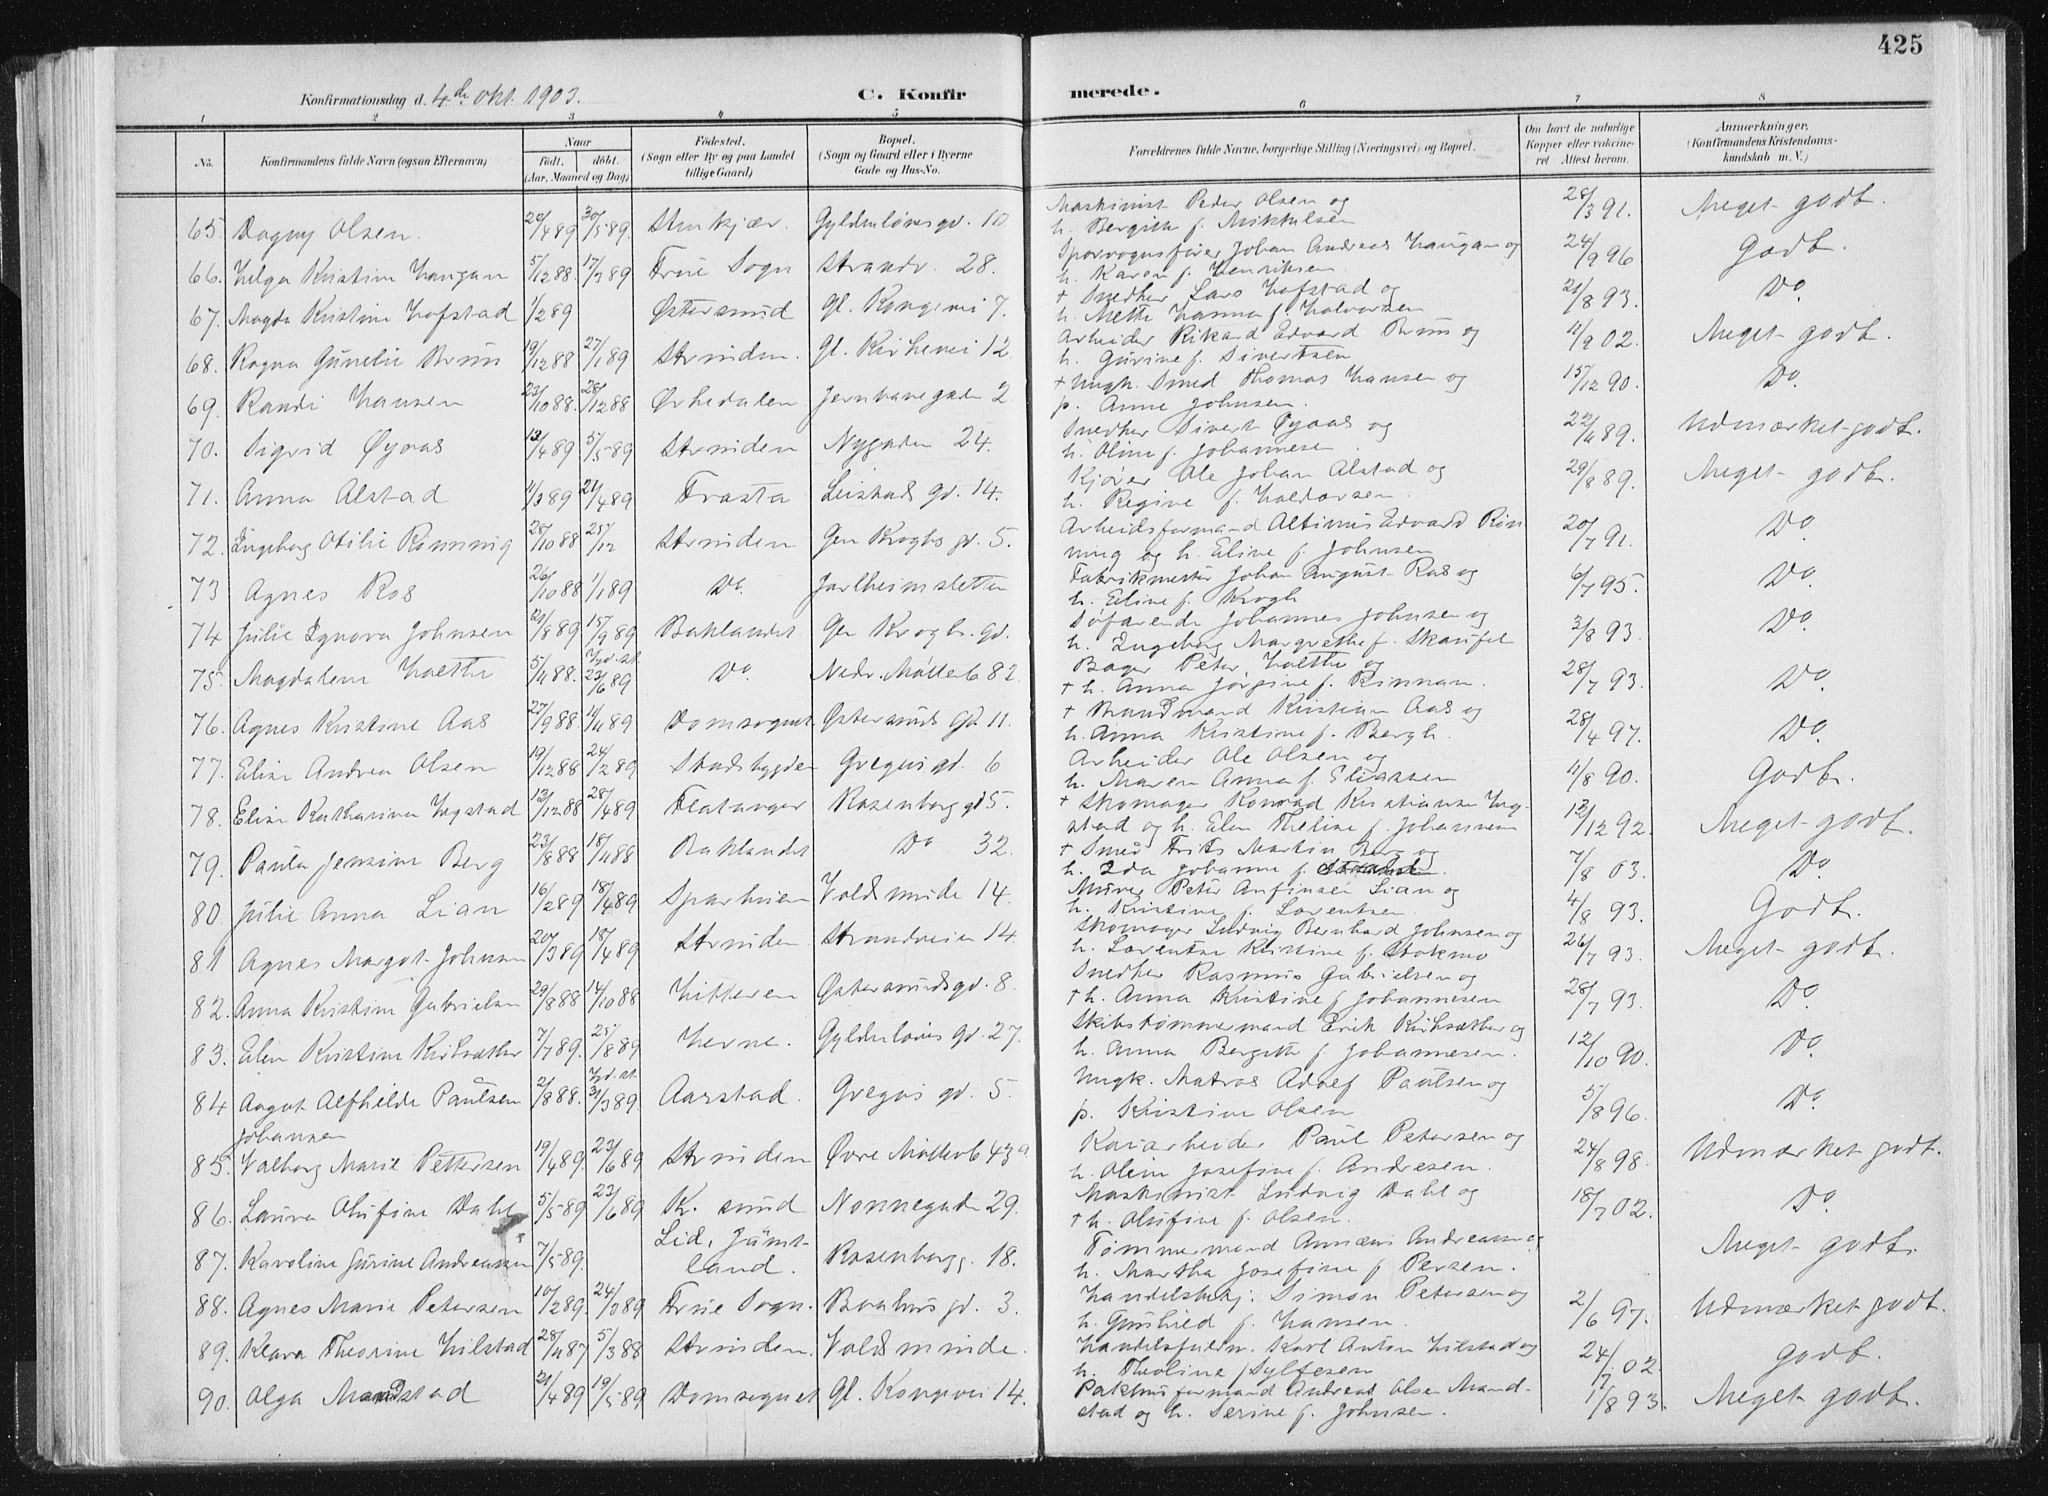 425
Konfirmationsdag d. 4de okt. 1903. C. Konfirmerede.
1 2 3 4 5 6 7 8
No. Konfirmandens fulde Navn (ogsaa Efternavn) Naar født. døbt. (Aar, Maaned og Dag) Fødested. (Sogn eller By og paa Landet tillige Gaard) Bopæl. (Sogn og Gaard eller i Byerne Gade og Hus-No. Forældrenes fulde Navne, borgerlige Stilling (Næringsvei) og Bopæl. Om havt de naturlige Kopper eller vaccineret Attest herom. Anmærkninger, (Konfirmandens Kristendomskundskab m. V.)
65. Dagny Olsen. 20/4 89 30/5 89. Stenkjær. Gyldenløvesgd. 10 Maskinist Peder Olsen og h. Bergith f. Mikkelsen 28/3 91. Meget godt.
66. Helga Kristine Haugan 5/12 88. 17/3 89 Frue Sogn Strandv. 28. Sporvognsfører Johan Andreas Haugan og h. Karen f. Henriksen. 24/9 96 Godt.
67. Magda Kristine Hofstad 1/2 89 Østersund gl. Kongevei 7. + Snedker Lars Hofstad og h. Mette Hanna f. Halvorsen 21/8 93. Do.
68. Ragna Gunelie Bruus 19/12 88 27/1 89 Strinden. Gl. Kirkevei 12. Arbeider Rikard Edvard Bruus og h. Gurine f. Sivertsen 11/9 02. Meget godt.
69. Randi Hansen 23/10 88. 28/12 88 Ørkedalen Jernbanegaden 2 + Ungk. Smed Thomas Hansen og p. Anne Johnsen. 15/12 90. Do.
70. Sigrid Øyaas 13/4 89 5/5 89 Strinden Nygaden 24. Snedker Sivert Øyaas og h. Oline f. Johannesen 22/4 89. Udmærket godt.
71. Anna Alstad 11/3 89 21/4 89 Frosta Leistads gd. 14. Kjører Ole Johan Alstad og h. Regine f. Haldorsen. 29/8 89. Meget godt.
72. Ingeborg Otilie Rønning 28/10 88 25/12 Strinden Gen Kroghs gd. 5. Arbeidsformand Altinius Edvard Rønning og h. Eline f. Johnsen 20/7 91. Do
73 Agnes Ros 26/10 88 1/1 89 Do. Jarlheimsletten Fabrikmester Johan August Ros og h. Eline f. Krogh 6/7 95. Do
74 Julie Ignora Johnsen 21/8 89 15/9 89 Baklandet Gen Kroghs. gd. Søfarende Johannes Johnsen og h. Ingeborg Margrethe f. Skaufel 3/8 93. Do.
75. Magdalene Holthe 5/4 88. Hjd. st. 23/6 89 Do Nedr. Møllenb 82 Bager Peter Holthe og + h. Anna Jørgine f. Rinnan. 28/7 93. Do.
76. Agnes Kristine Aas 27/9 88 11/11 89 Domsognet Østersunds gd. 11. + Brandmand Kristian Aas og h. Anna Kristine f. Bergh. 28/4 97. Do.
77. Elise Andrea Olsen 19/12 88 24/2 89 Stadsbygden Gregus gd. 6 Arbeider Ole Olsen og h. Maren Anna f. Eliassen 4/8 90. Godt.
78. Elise Katharina Hegstad 13/12 88 28/4 89 Flatanger Rosenborg gd 5. + Skomager Konrad Kristiansen Hegstad og h. Elen Theline f. Johannesen 13/12 92. Meget godt.
79. Paula Jensine Berg 23/8 88 18/11 88 Baklandet Do 32. + Smed Frits Martin Berg og h. Ida Johanne f. 7/8 03. Do.
80. Julie Anna Lian 16/2 89 18/4 89 Sparbuen Voldsminde 14. Murer Peter Anfinsen Lian og h. Kristine f. Lorentsen 4/8 93. Godt.
81 Agnes Margot Johnsen 20/3 89 18/4 89 Strinden Strandveien 14. Skomager Ludvig Bernhard Johnsen og h. Lorentse Kristine f. Stokmo 26/7 93. Meget godt.
82. Anna Kristine Gabrielsen 29/8 88 14/10 88 Hitteren Østersundsgd. 8. Snedker Rasmus Gabrielsen og + h. Anna Kristine f Johannesen 28/7 93. Do.
83. Elen Kristine Kirksæther 7/7 89. 25/8 89 Hevne. Gyldenløves gd. 27. Skibstømmermand Erik Kirksæther og h. Anna Bergitte f. Johannesen. 12/10 90. Do.
84 Aagot Alfhilde Paulsen Johansen 2/8 88. Hjd. st. 31/3 89. Aarstad. Gregus gd. 5. Ungk. Matros Adolf Paulsen og p. Kristine Olsen 5/8 96. Do.
85. Valborg Marie Pettersen 19/4 89. 23/6 89 Strinden Øvre Møllenb 43a Kaiarbeider Paul Petersen og h. Oline Josefine f. Andresen. 24/8 98. Udmærket godt.
86. Laura Olufine Dahl 5/5 89 23/6 89 K. sund Nonnegaden 29. Maskinist Ludvig Dahl og + h. Olufine f. Olsen. 18/7 02. Do
87. Karoline Gurine Andreassen 7/5 89. Lid, Jämtland. Rosenborgg. 18. Tømmermand Annæus Andreassen og h. Martha Josefine f Persen. Meget godt.
88. Agnes Marie Petersen 10/2 89. 24/3 89 Frue Sogn. Baahus gd. 3. Handelsbetj. Simon Petersen og h. Gunhild f. Hansen. 2/6 97. Udmærket godt.
89. Klara Theorine Hilstad 28/11 87 5/3 88 Strinden. Voldsminde. Handelsfuldm. Karl Anton Hilstad og h. Theoline f Sylfesen 24/7 02 godt.
90. Olga Mandstad 21/4 89 19/5 89 Domsognet Gl. Kongevei 14. Pakhusformand Andreas Olsen Mandstad og h. Serine f. Johnsen. 1/8 93. Meget godt.